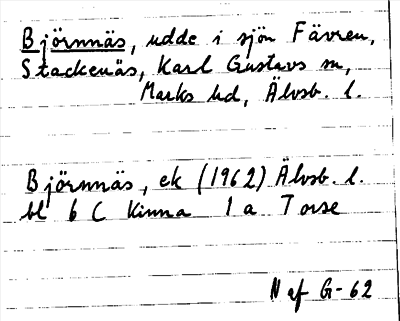 Björnnäs, udde i sjön Fävren,
Stackenäs, Karl Gustavs sn,
Marks hd, Älvsb. l.
Björnnäs, ek (1962) Älvsb. l.
bl 6 C Kinna 1 a Torse
N ef G-62